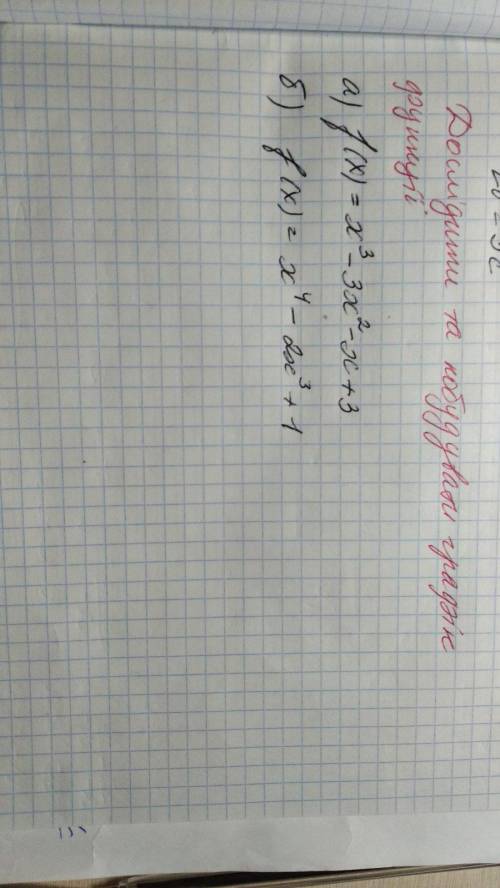 Дослідити та побудувати графік
функції
а) f(x) = x³ - 3x² - x + 3
б) f(x) = x⁴ - 2x³ + 1